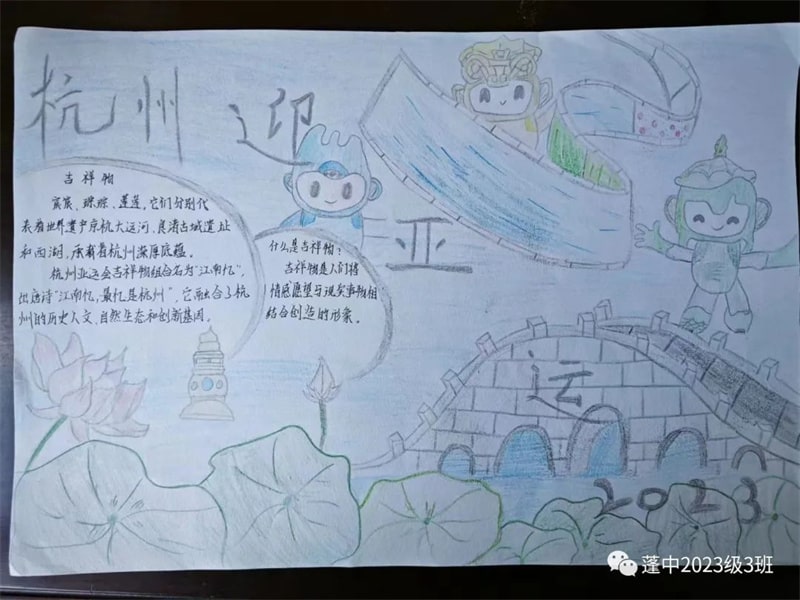 杭州迎
亚
运
2023
吉祥物
宸宸、琮琮、莲莲,它们分别代
表着世界遗产京杭大运河、良渚古城遗址
和西湖,承载着杭州深厚底蕴。
杭州亚运会吉祥物组合名为“江南忆”,
出唐诗“江南忆,最忆是杭州”,它融合了杭
州的历史人文、自然生态和创新基因。
什么是吉祥物?
吉祥物是人们将
情感愿望与现实事物相
结合创造的形象。
蓬中2023级3班